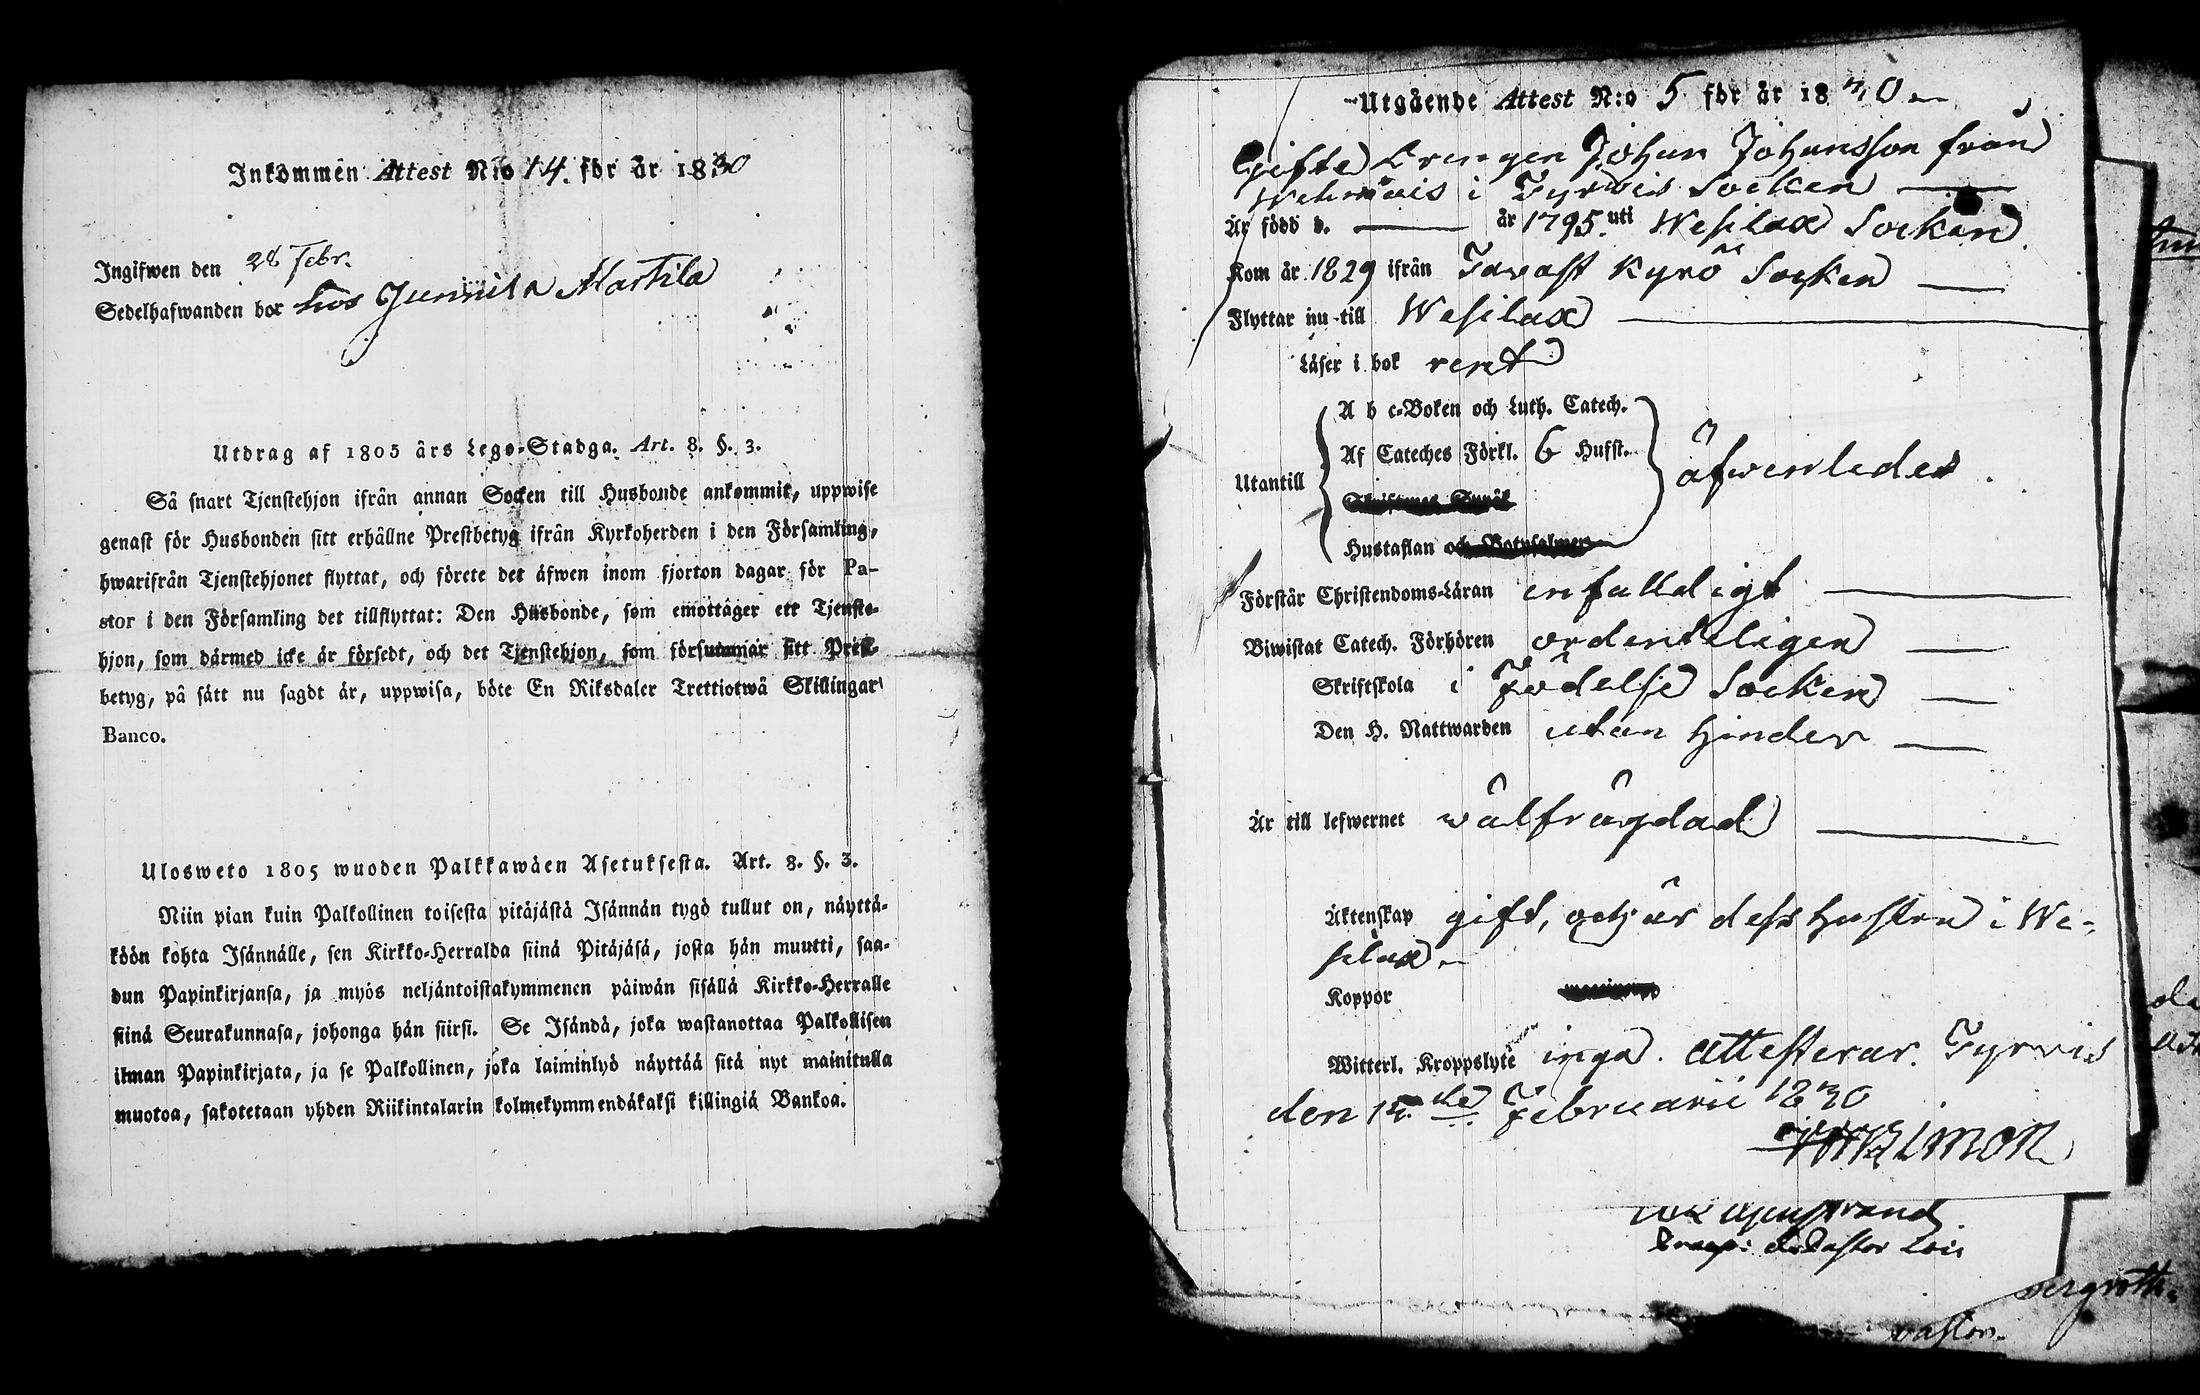 Inkommen Attest N:o 14. för år 1830
Ingifwen den 28 Febr.
Sedelhafwanden bor hos Junnila Marttila
Utdrag af 1805 års Lego-Stadga. Art. 8. §. 3.
Så snart Tjenstehjon ifrån annan Socken till Husbonde ankommit, uppwise
genast för Husbonden sitt erhållne Prestbetyg ifrån Kyrkoherden i den Församling,
hwarifrån Tjenstehjonet flyttat, och förete det äfwen inom fjorton dagar för Pa-
stor i den Församling det tillflyttat: Den Husbonde, som emottager ett Tjenste-
hjon, som därmed icke är försedt, och det Tjenstehjon, som försummar sitt Prest-
betyg, på sätt nu sagdt är, uppwisa, böte En Riksdaler Trettiotwå Skillingar
Banco.
Ulosweto 1805 wuoden Palkkawäen Asetuksesta. Art. 8. §. 3.
Niin pian kuin Palkollinen toisesta pitäjästä Isännän tygö tullut on, näyttä-
köön kohta Isännälle, sen Kirkko-Herralda siinä Pitäjäsä, josta hän muutti, saa-
dun Papinkirjansa, ja myös neljäntoistakymmenen päiwän sisällä Kirkko-Herralle
siinä Seurakunnasa, johonga hän siirsi. Se Isändä, joka wastanottaa Palkollisen
ilman Papinkirjata, ja se Palkollinen, joka laiminlyö näyttää sitä nyt mainitulla
muotoa, sakotetaan yhden Riikintalarin kolmekymmendäkaksi killingiä Bankoa.
Utgående Attest N:o 5 för år 1830
Gifte Drengen Johan Johansson från
i Tyrwis Socken
Är född d. — år 1795. uti Wesilax Socken
Kom år 1829 ifrån Tavast Kyrö Socken
Flyttar nu till Wesilax
Läser i bok rent
A b c-Boken och Luth. Catech.
Af Cateches Förkl. 6 Hufst.
Utantill äfwenledes.
Hustaflan och Botpsalmer
Förstår Christendoms-Läran enfalldigt
Biwistat Catech. Förhören ordenteligen
Skriftskola i Födelse Socken
Den H. Nattwarden utan hinder
Är till lefwernet wälfrägdad
Äktenskap gift, och är dess hustru i We-
silax
Koppor
Witterl. Kroppslyte inga. attesterar. Tyrvis
den 15.de Februarii 1830